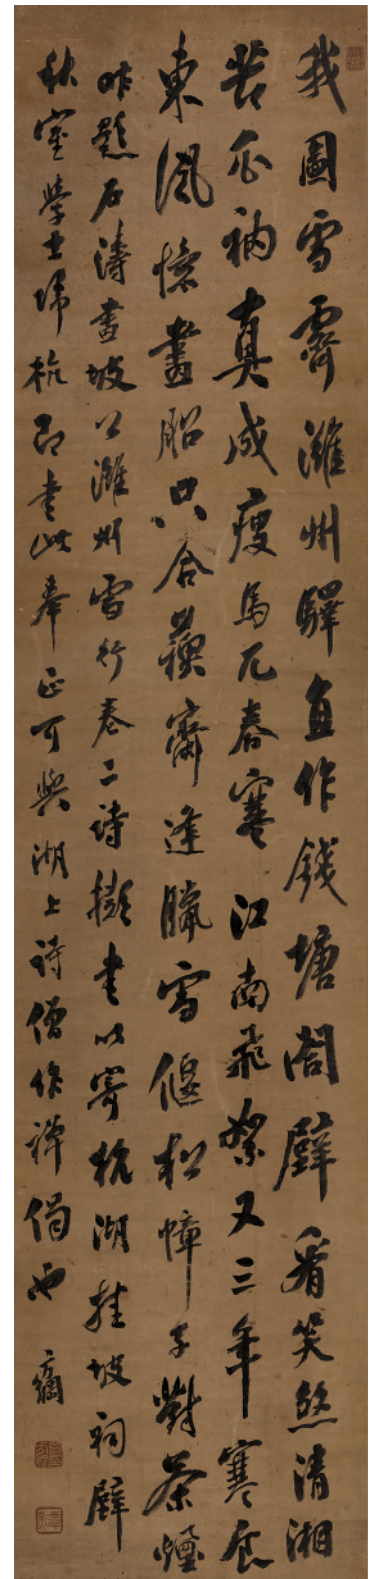 我圖雪霽濰州驛直作錢塘閣壁看笑煞清湘
苦瓜衲真成瘦馬兀春寒江南飛絮又三年寒食
東風憶畫船只合蘇齋逢臘雪偃松幛子對茶煙
昨題石濤畫坡公濰州雪行卷二詩擬書以寄杭湖挂坡祠壁
秋室學士歸杭即書此奉正可與湖上詩僧作禪偈也 方綱